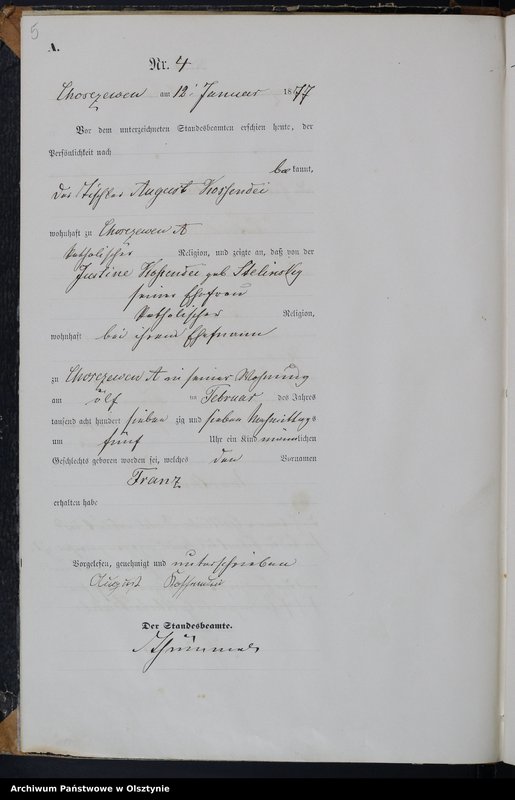 5
A.
Nr. 4
Chorczewen am 12. Januar 1877
Vor dem unterzeichneten Standesbeamten erschien heute, der
Persönlichkeit nach
be kannt,
der Tischler August Kossendei
wohnhaft zu Chorczewen A
katholischer Religion, und zeigte an, daß von der
Justine Kossendei geb. Stelinsky
seiner Ehefrau
katholischer Religion,
wohnhaft bei ihrem Ehemann
zu Chorczewen A in seiner Wohnung
am ölf ten Februar des Jahres
tausend acht hundert sieben zig und sieben Nachmittags
um fünf Uhr ein Kind männlichen
Geschlechts geboren worden sei, welches den Vornamen
Franz
erhalten habe
Vorgelesen, genehmigt und unterschrieben
August Kossendei
Der Standesbeamte.
Archiwum Państwowe w Olsztynie